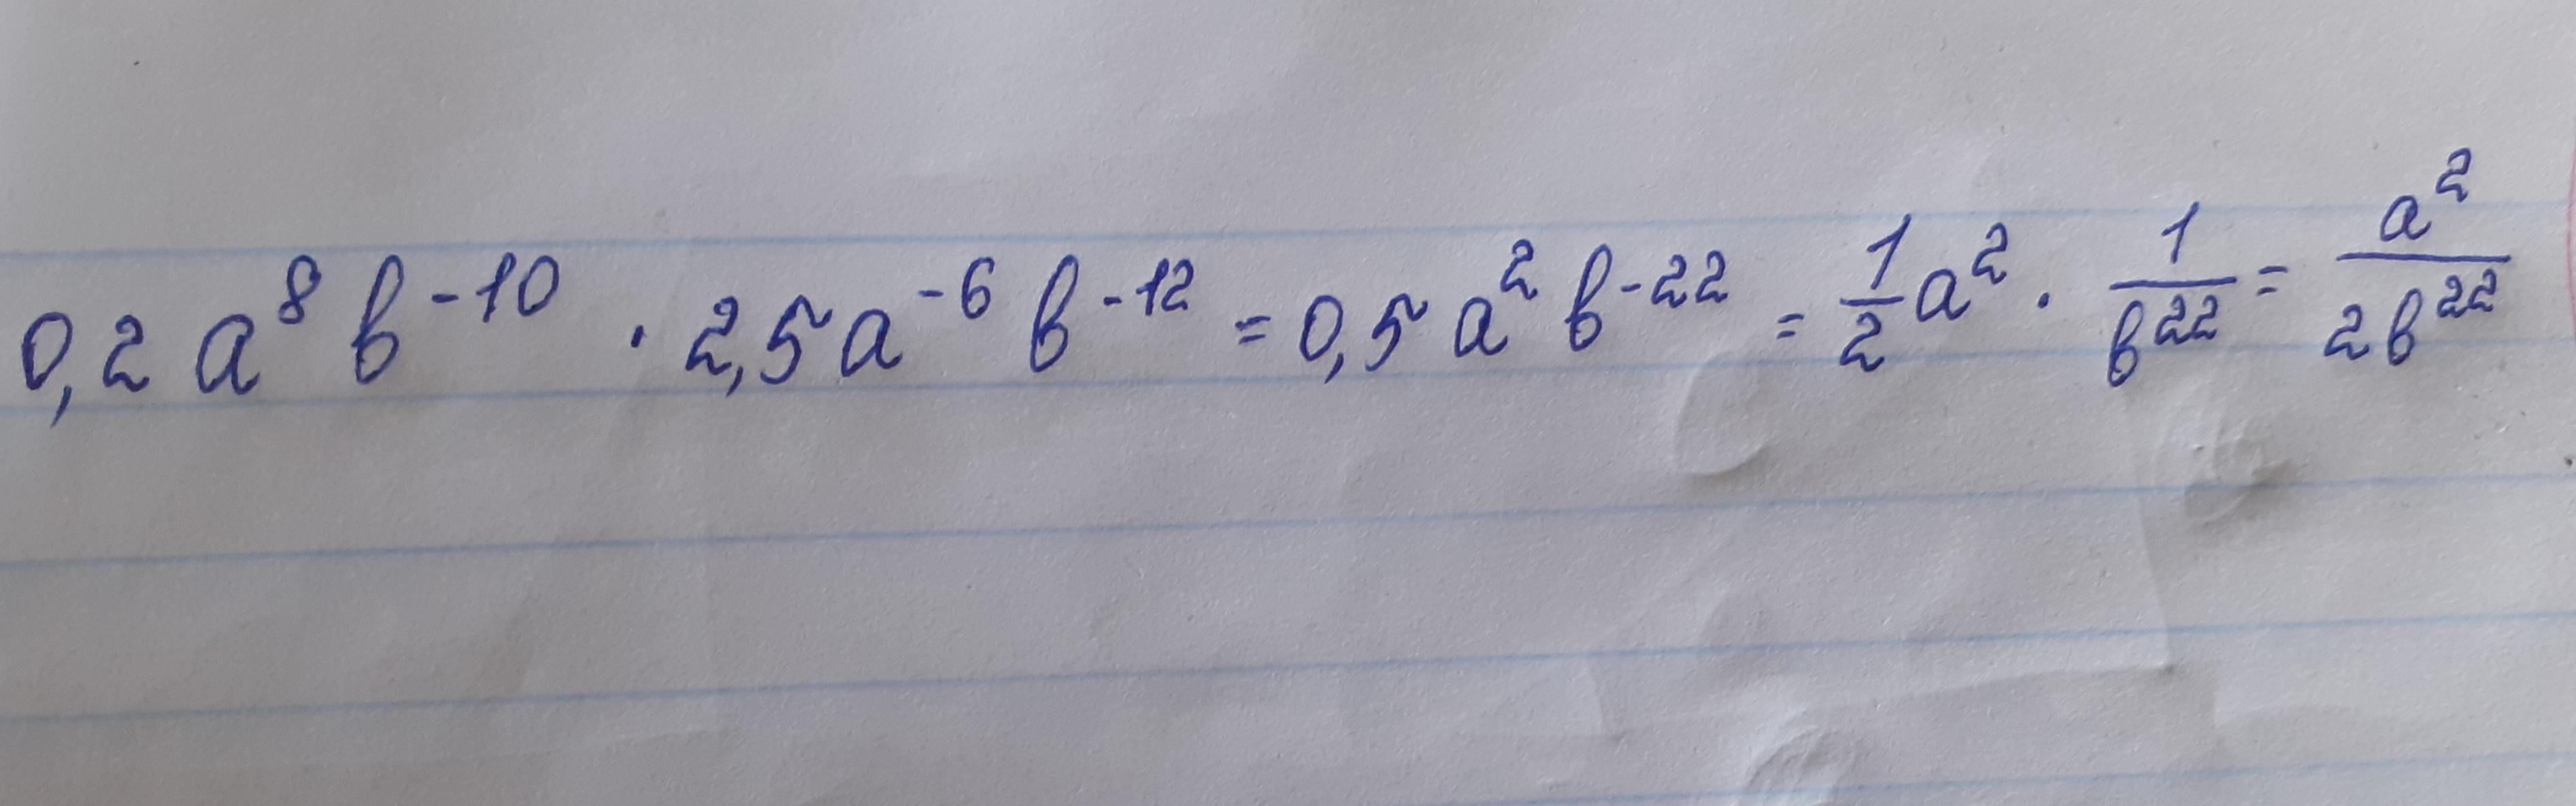 0,2 a⁸ b⁻¹⁰ · 2,5 a⁻⁶ b⁻¹² = 0,5 a² b⁻²² = 1/2 a² · 1/b²² = a²/2b²²